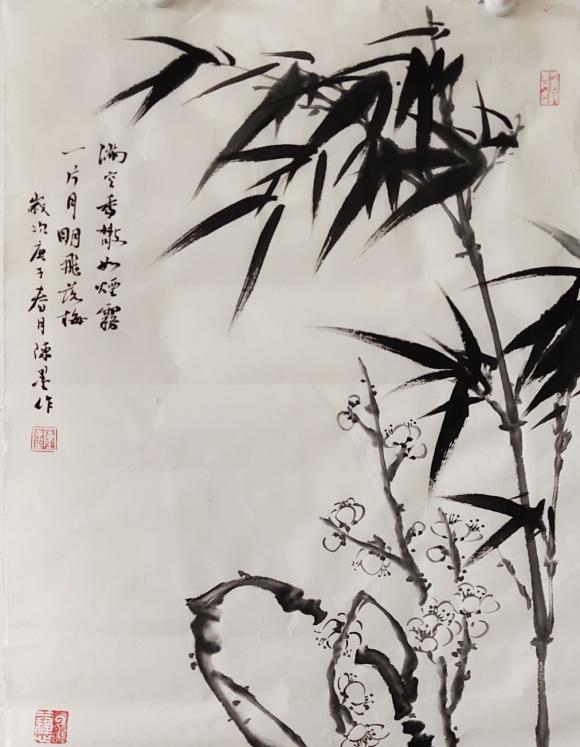 满空香散如煙霧
一片月明飛落梅
歲次庚子春月陳墨作